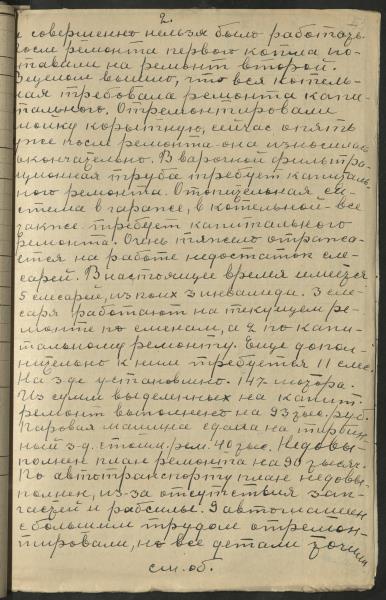 2.
и совершенно нельзя было работать.
после ремонта первого котла по-
ставили на ремонт второй.
В целом вышло, что вся котель-
ная требовала ремонта капи-
тального. Отремонтировали
мойку корытную, сейчас опять
уже после ремонта она износилась
окончательно. В варочной фильтро-
ционная труба требует капиталь-
ного ремонта. Отопительная си-
стема в гараже, в котельной - все
также требует капитального
ремонта. Очень тяжело отража-
ется на работе недостаток сле-
сарей. В настоящее время имеется
5 слесарей, из коих 3 инвалида. 3 сле-
саря работают на текущем ре-
монте по сменам, а 2 по капи-
тальному ремонту. Еще допол-
нительно к ним требуется 11 слес.
На з-де установлено 147 мотора.
Из сумм выделенных на капит.
ремонт выполнено на 93 тыс. руб.
Паровая машина сдана на
ный з-д. стоим. рем. 40 тыс. Недовы-
полнен план ремонта на 90 тысяч.
По автотранспорту план недовы-
полнен, из-за отсутствия зап-
частей и рабсилы. 9 автомашин
с большим трудом отремон-
тировали, но все детали точили
см. об.